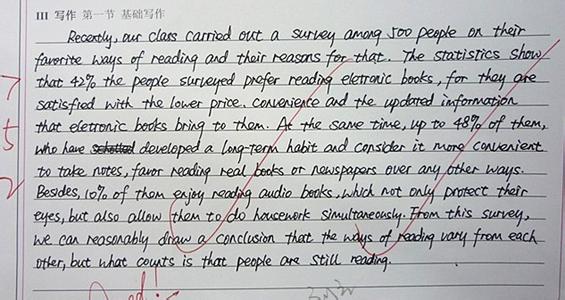 III 写作 第一节 基础写作
Recently, our class carried out a survey among 500 people on their
favorite ways of reading and their reasons for that. The statistics show
that 42% the people surveyed prefer reading eletronic books, for they are
satisfied with the lower price. convenience and the updated information
that eletronic books bring to them. At the same time, up to 48% of them,
who have developed a long-term habit and consider it more convenient
to take notes, favor reading real books or newspapers over any other ways.
Besides, 10% of them enjoy reading audio books, which not only protect their
eyes, but also allow them to do housework simultaneously. From this survey,
we can reasonably draw a conclusion that the ways of reading vary from each
other, but what counts is that people are still reading.
7
5
2
Good!